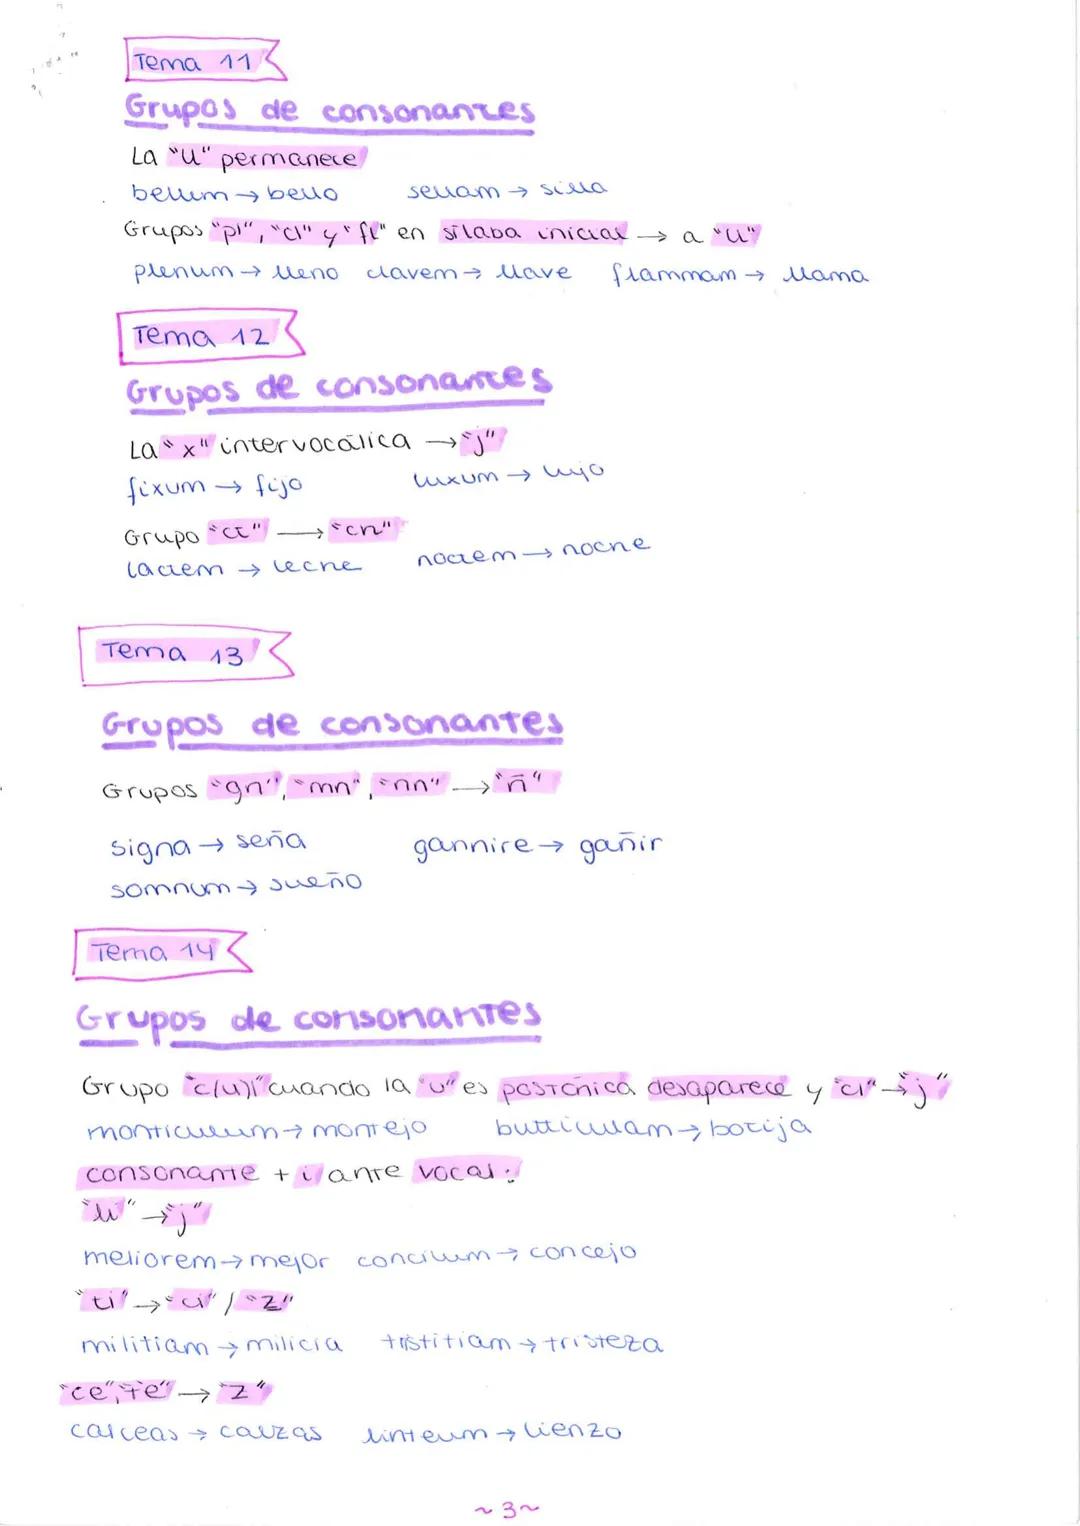 Tema 11
Grupos de consonantes
La "ll" permanece
bellum → bello sellam → silla
Grupos "pl", "cl" y "fl" en sílaba inicial → a "ll"
plenum → lleno clavem → llave flammam → llama
Tema 12
Grupos de consonantes
La "x" intervocálica → "j"
fixum → fijo luxum → lujo
Grupo "ct" → "ch"
lactem → leche noctem → noche
Tema 13
Grupos de consonantes
Grupos "gn", "mn", "nn" → "ñ"
signa → seña gannire → gañir
somnum → sueño
Tema 14
Grupos de consonantes
Grupo "c(u)l" cuando la "u" es postónica desaparece y "cl" → "j"
monticulum → montejo butticulam → botija
consonante + i ante vocal:
"li" → "j"
meliorem → mejor concilium → concejo
"ti" → "ci" / "z"
militiam → milicia tristitiam → tristeza
"ce", "te" → "z"
calceas → calzas linteum → lienzo
~ 3 ~